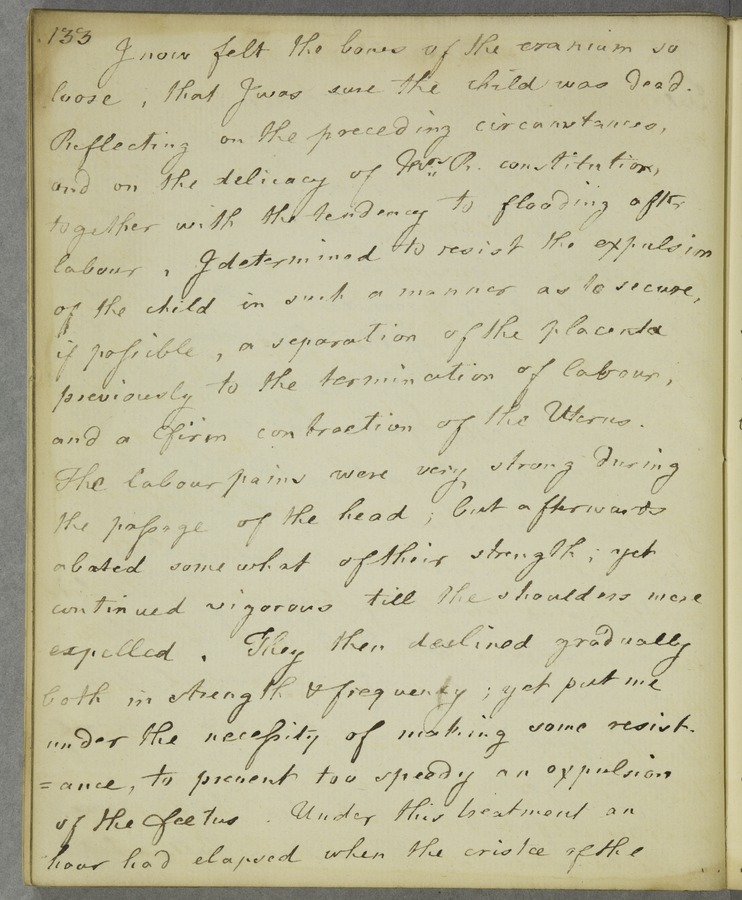 133
I now felt the bones of the cranium so
loose, that I was sure the child was dead.
Reflecting on the preceding circumstances,
and on the delicacy of Mrs. R. constitution,
together with the tendency to flooding after
labour, I determined to resist the expulsion
of the child in such a manner as to secure,
if possible, a separation of the placenta
previously to the termination of labour,
and a firm contraction of the Uterus.
The labour pains were very strong during
the passage of the head; but afterwards
abated somewhat of their strength; yet
continued vigorous till the shoulders were
expelled. They then declined gradually
both in strength & frequency; yet put me
under the necessity of making some resist-
=ance, to prevent too speedy an expulsion
of the foetus. Under this treatment an
hour had elapsed when the cristae of the